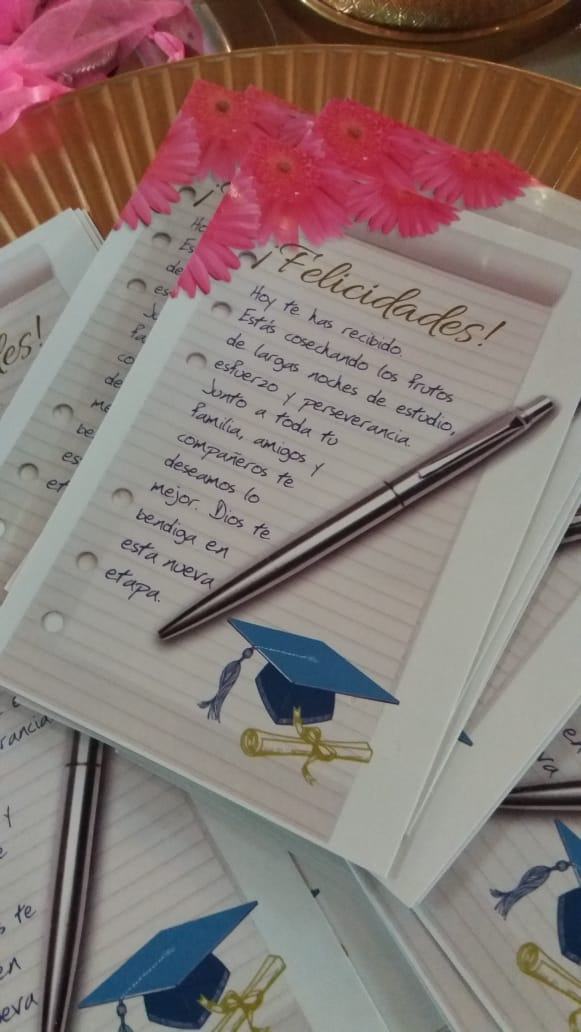 ¡Felicidades!
Hoy te has recibido.
Estás cosechando los frutos
de largas noches de estudio,
esfuerzo y perseverancia.
Junto a toda tu
familia, amigos y
compañeros te
deseamos lo
mejor. Dios te
bendiga en
esta nueva
etapa.